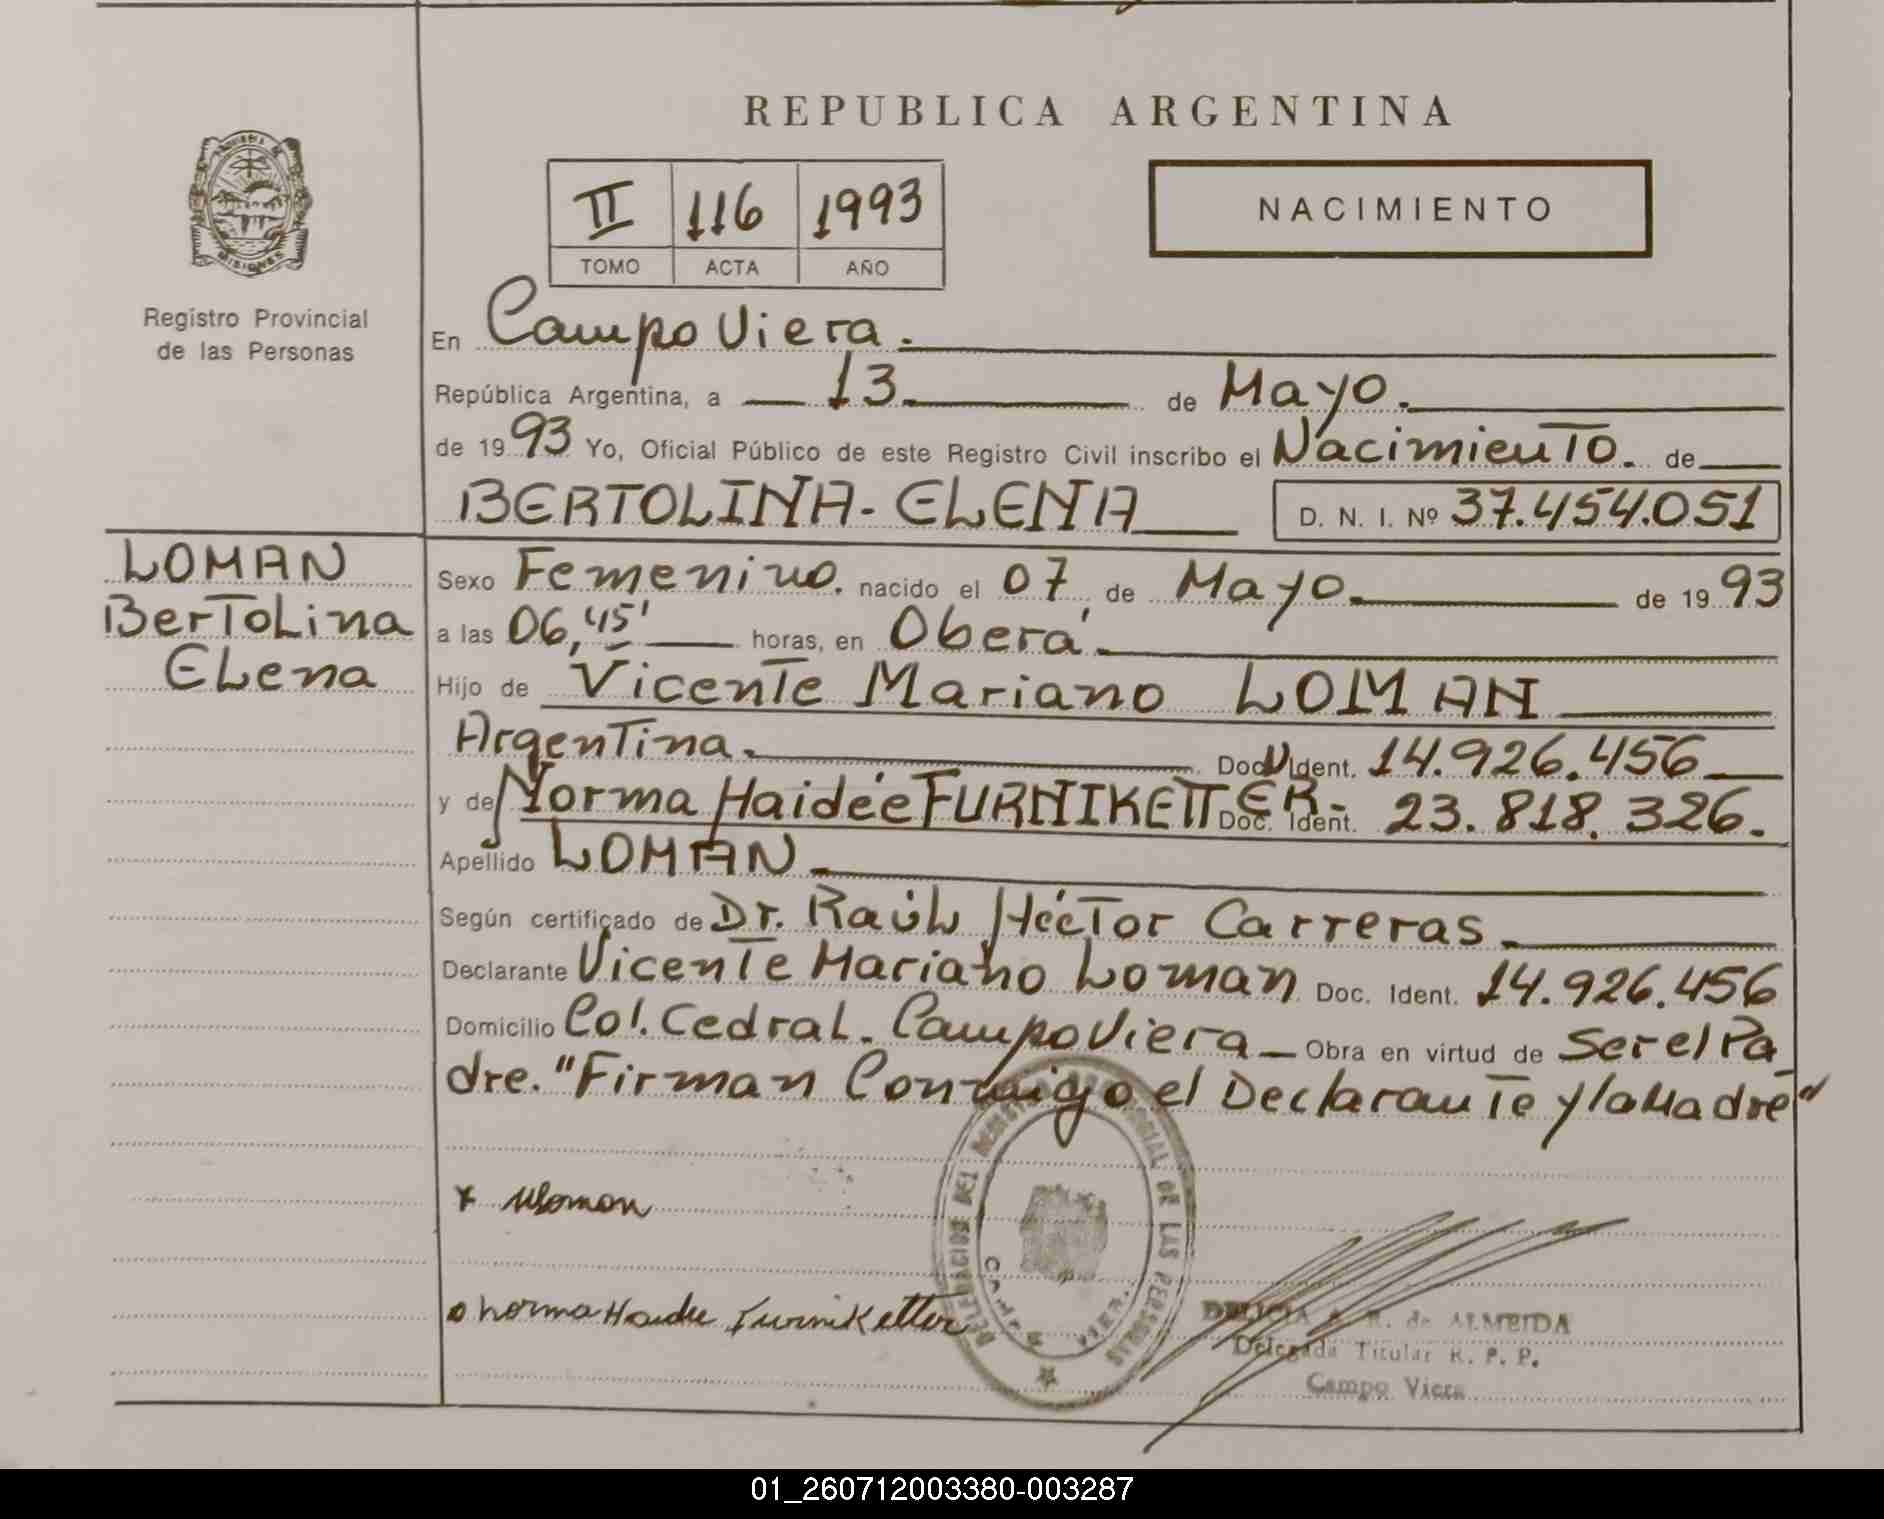 REPUBLICA ARGENTINA
II 116 1993
TOMO ACTA AÑO
NACIMIENTO
MISIONES
Registro Provincial
de las Personas
En Campo Viera.
República Argentina, a 13 de Mayo.
de 1993 Yo, Oficial Público de este Registro Civil inscribo el Nacimiento. de
BERTOLINA - ELENA D. N. I. Nº 37.454.051
LOMAN
BerToLina
ELena
Sexo Femenino. nacido el 07, de Mayo. de 1993
a las 06,45' horas, en Oberá.
Hijo de Vicente Mariano LOMAN
Argentina. Doc. U Ident. 14.926.456
y de Norma Haidée FURNIKETTER - Doc. Ident. 23.818.326.
Apellido LOMAN
Según certificado de Dr. Raúl Héctor Carreras
Declarante Vicente Mariano Loman Doc. Ident. 14.926.456
Domicilio Col. Cedral. Campo Viera Obra en virtud de Ser el Pa
dre. "Firman Conmigo el Declarante y la Madre"
DELEGACION DEL REGISTRO PROVINCIAL DE LAS PERSONAS
CAMPO VIERA
Norma Haidee Furniketter
DELICIA A. R. de ALMEIDA
Delegada Titular R. P. P.
Campo Viera
01_260712003380-003287